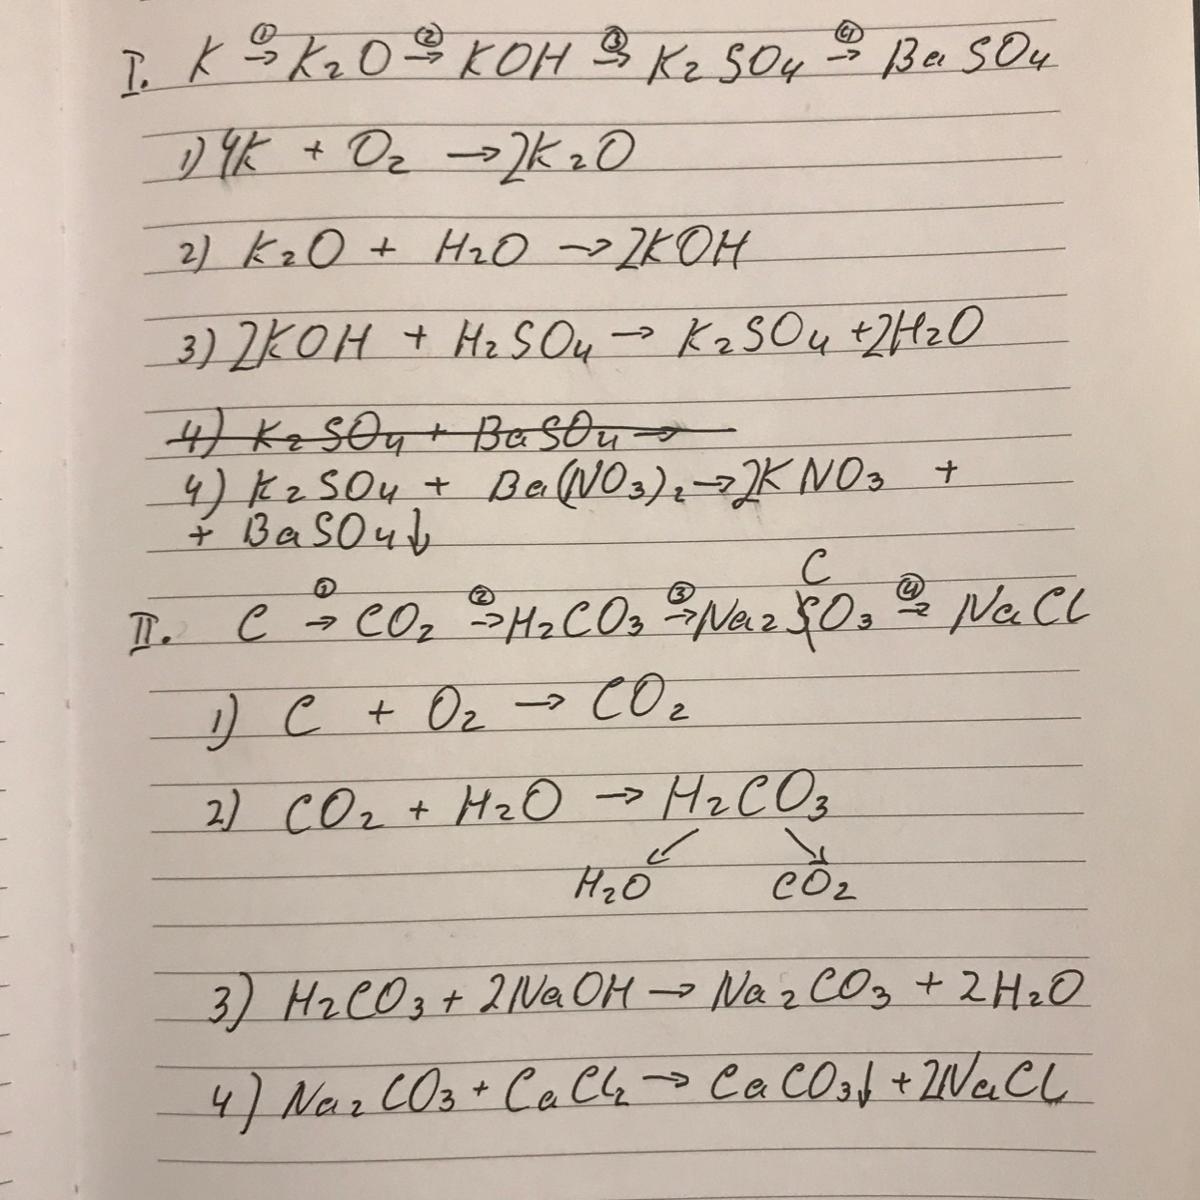 I. K ①→ K2O ②→ KOH ③→ K2SO4 ④→ BaSO4
1) 4K + O2 → 2K2O
2) K2O + H2O → 2KOH
3) 2KOH + H2SO4 → K2SO4 + 2H2O
4) K2SO4 + BaSO4 →
4) K2SO4 + Ba(NO3)2 → 2KNO3 +
+ BaSO4↓
II. C ①→ CO2 ②→ H2CO3 ③→ Na2CO3 ④→ NaCl
1) C + O2 → CO2
2) CO2 + H2O → H2CO3
H2O CO2
3) H2CO3 + 2NaOH → Na2CO3 + 2H2O
4) Na2CO3 + CaCl2 → CaCO3↓ + 2NaCl